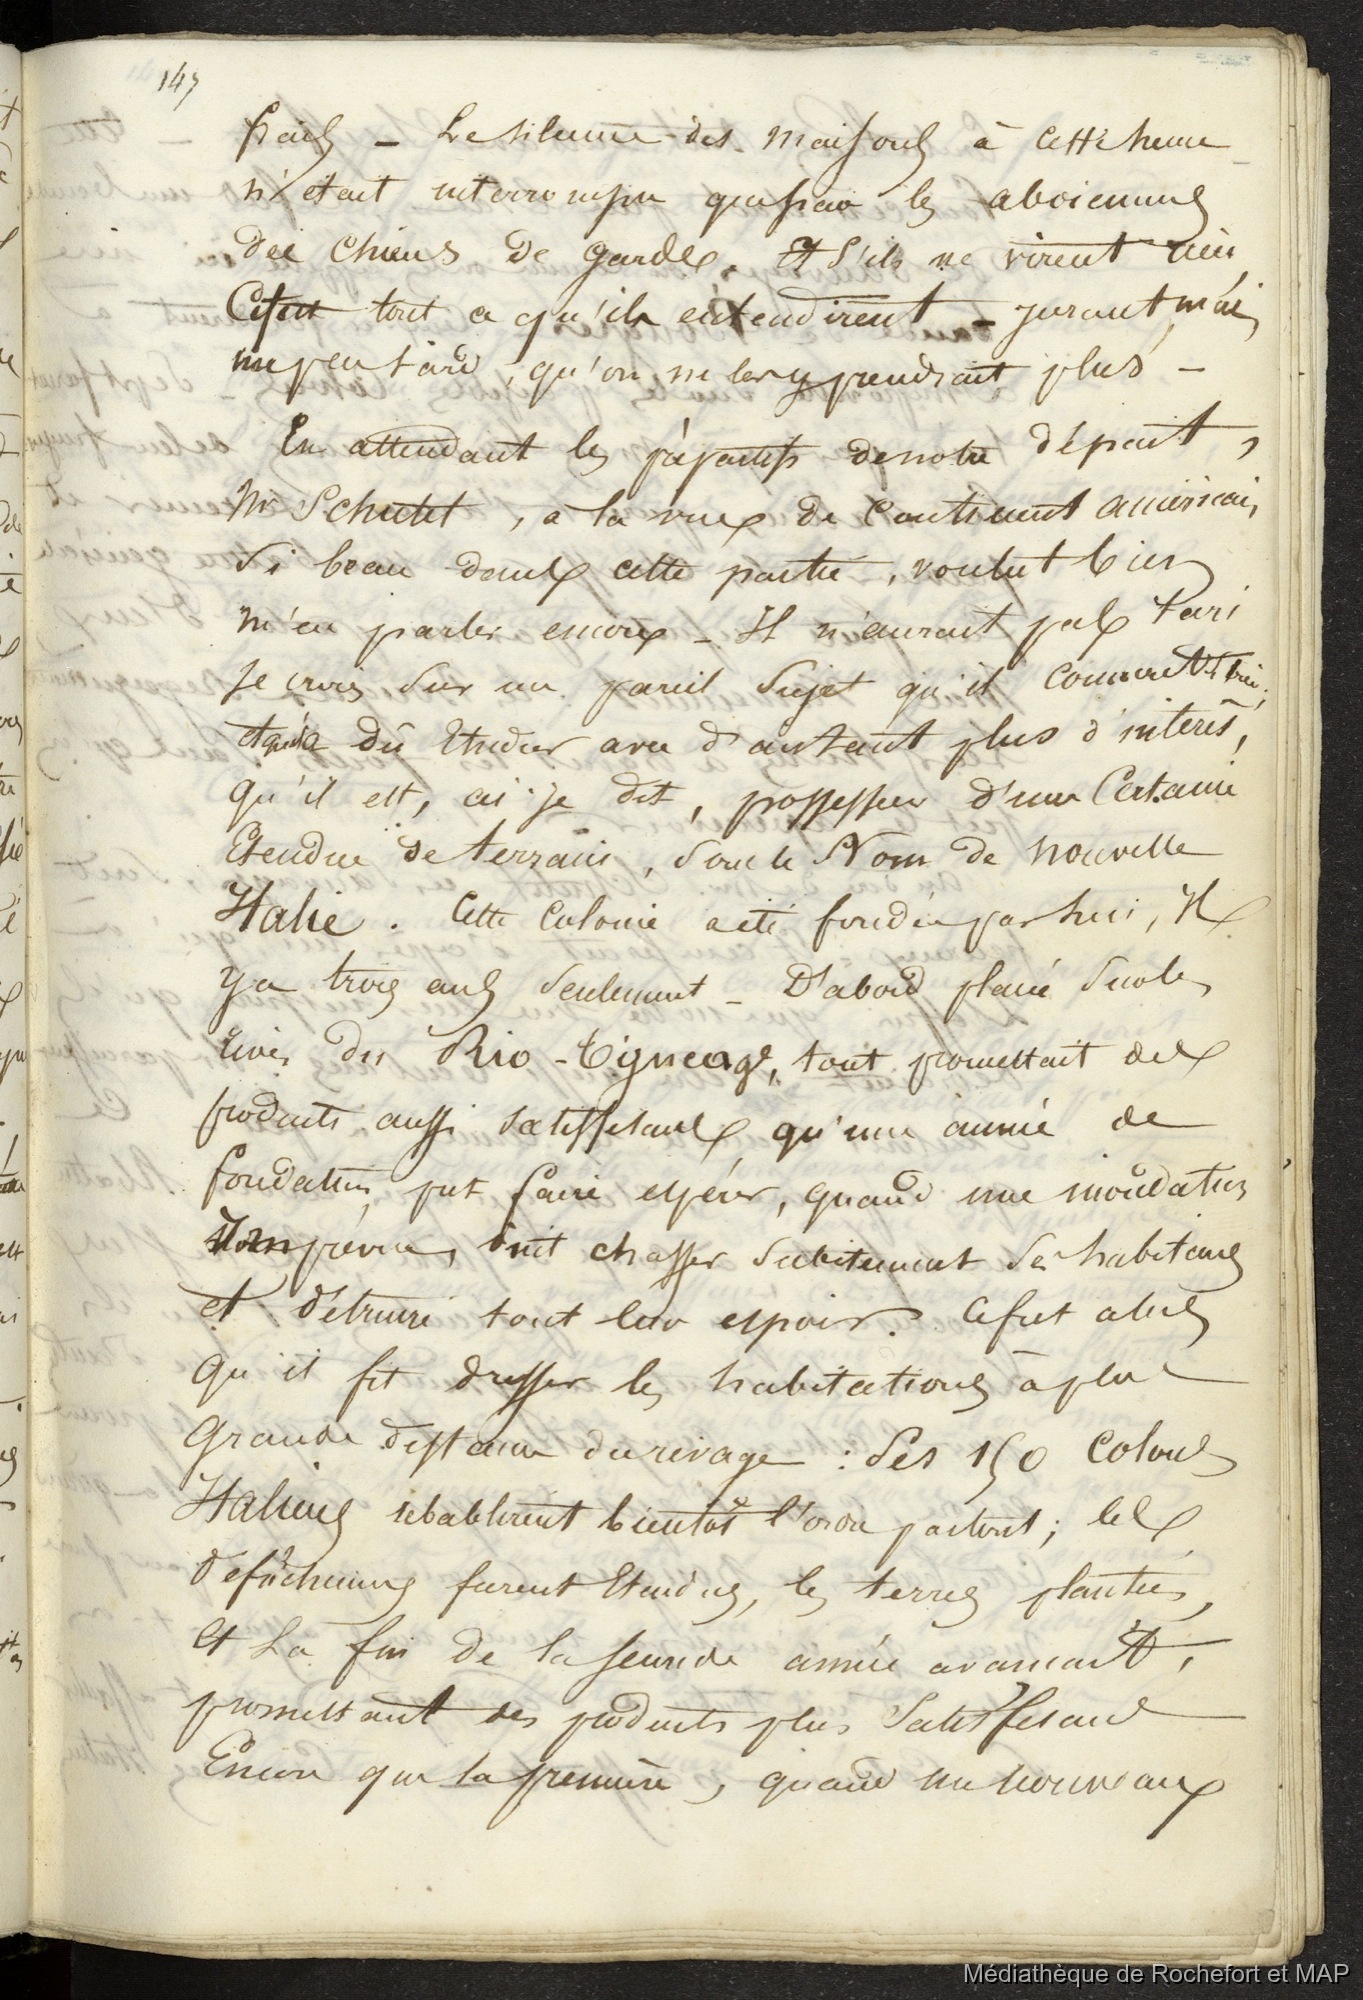 147
frais – Le silence des maisons à cette heure
n'était interrompu que par les aboiemens
des chiens de garde. Et s'ils ne virent rien,
C'est tout ce qu'ils entendirent – jurant, mais
un peu tard, qu'on ne les y prendrait plus –
En attendant les préparatifs de notre départ,
Mr Schutel, à la vue du continent américain,
si beau dans cette partie, voulut bien
m'en parler encore – Il n'aurait pas tari
je crois, sur un pareil sujet qu'il connait très bien,
et qu'il a dû étudier avec d'autant plus d'intérêt,
qu'il est, ai-je dit, possesseur d'une certaine
étendue de terrain, sous le Nom de nouvelle
Italie. Cette colonie a été fondée par lui, Il
y a trois ans seulement – D'abord placé sur les
rives du Rio-Tigneage, tout promettait des
produits aussi satisfesans qu'une année de
fondation put faire espérer, quand une inondation
imprévue, vint chasser subitement ses habitans
et détruire tout leur espoir. Ce fut alors
qu'il fit dresser les habitations à plus
grande distance du rivage : Ses 150 colons
Italiens rétablirent bientôt l'ordre partout ; les
défrichemens furent étendus, les terres plantées,
et la fin de la seconde année avançait,
promettant des produits plus satisfesans
Encore que la première, quand un nouveau
Médiathèque de Rochefort et MAP